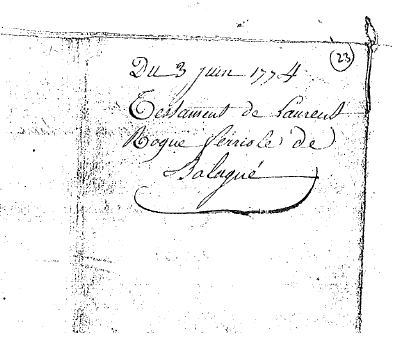 23
Du 3 juin 1774
Testament de Laurent
Rogue ferriole de
Balagué